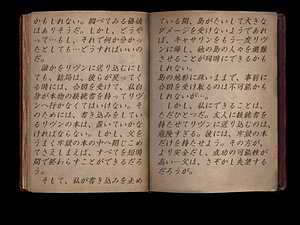 かもしれない。調べてみる価値
はありそうだ。しかし、どうや
って…もし、それで何か分かっ
たとしても…どうすればいいの
だ。
誰かをリヴンに送り込むにし
ても、結局は、彼らが戻ってく
る時には、合図を受けて、私自
身が本物の接続書を持ってリヴ
ンへ行かなくてはいけない。そ
のためには、書き込みをしてい
るリヴンの本は、置いていかな
ければならない。しかし、父を
うまく牢獄の本の中へ閉じこめ
てさえしまえば、すべてを短時
間で終わらすことができるだろ
う。
そして、私が書き込みを止め
ている間、島がたいして大きな
ダメージを受けないようであれ
ば、キャサリンをもう一度リヴ
ンに帰し、他の島の人々を避難
させることが同時にできるかも
しれない。
島の地形に疎いままで、事前に
合図を受け取るのは不可能かも
しれないが…。
しかし、私にできることは、
ただひとつだ。友人に接続書を
持たせてリヴンに送り込むのは、
危険すぎる。彼には、牢獄の本
だけを持たせよう。その方が、
より安全だし、成功の可能性が
高い…父は、さぞかし失望する
だろうが。